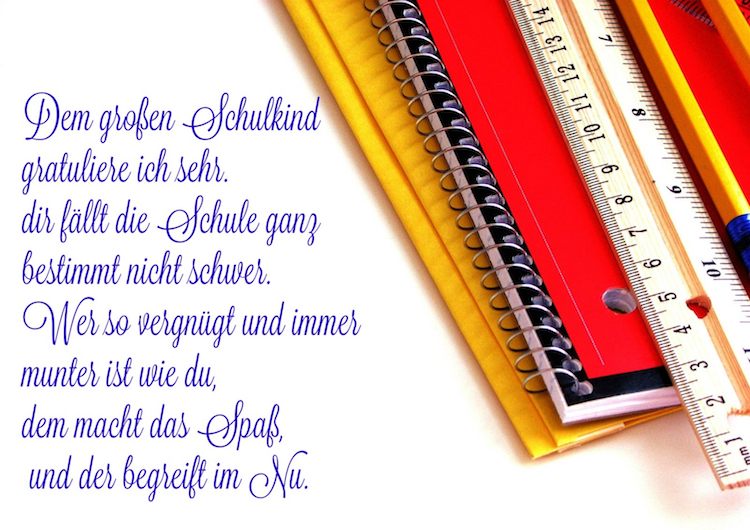 Dem großen Schulkind
gratuliere ich sehr.
dir fällt die Schule ganz
bestimmt nicht schwer.
Wer so vergnügt und immer
munter ist wie du,
dem macht das Spaß,
und der begreift im Nu.
14
13
12
11
10
9
8
7
6
5
4
3
2
1
mm
7
8
9
10